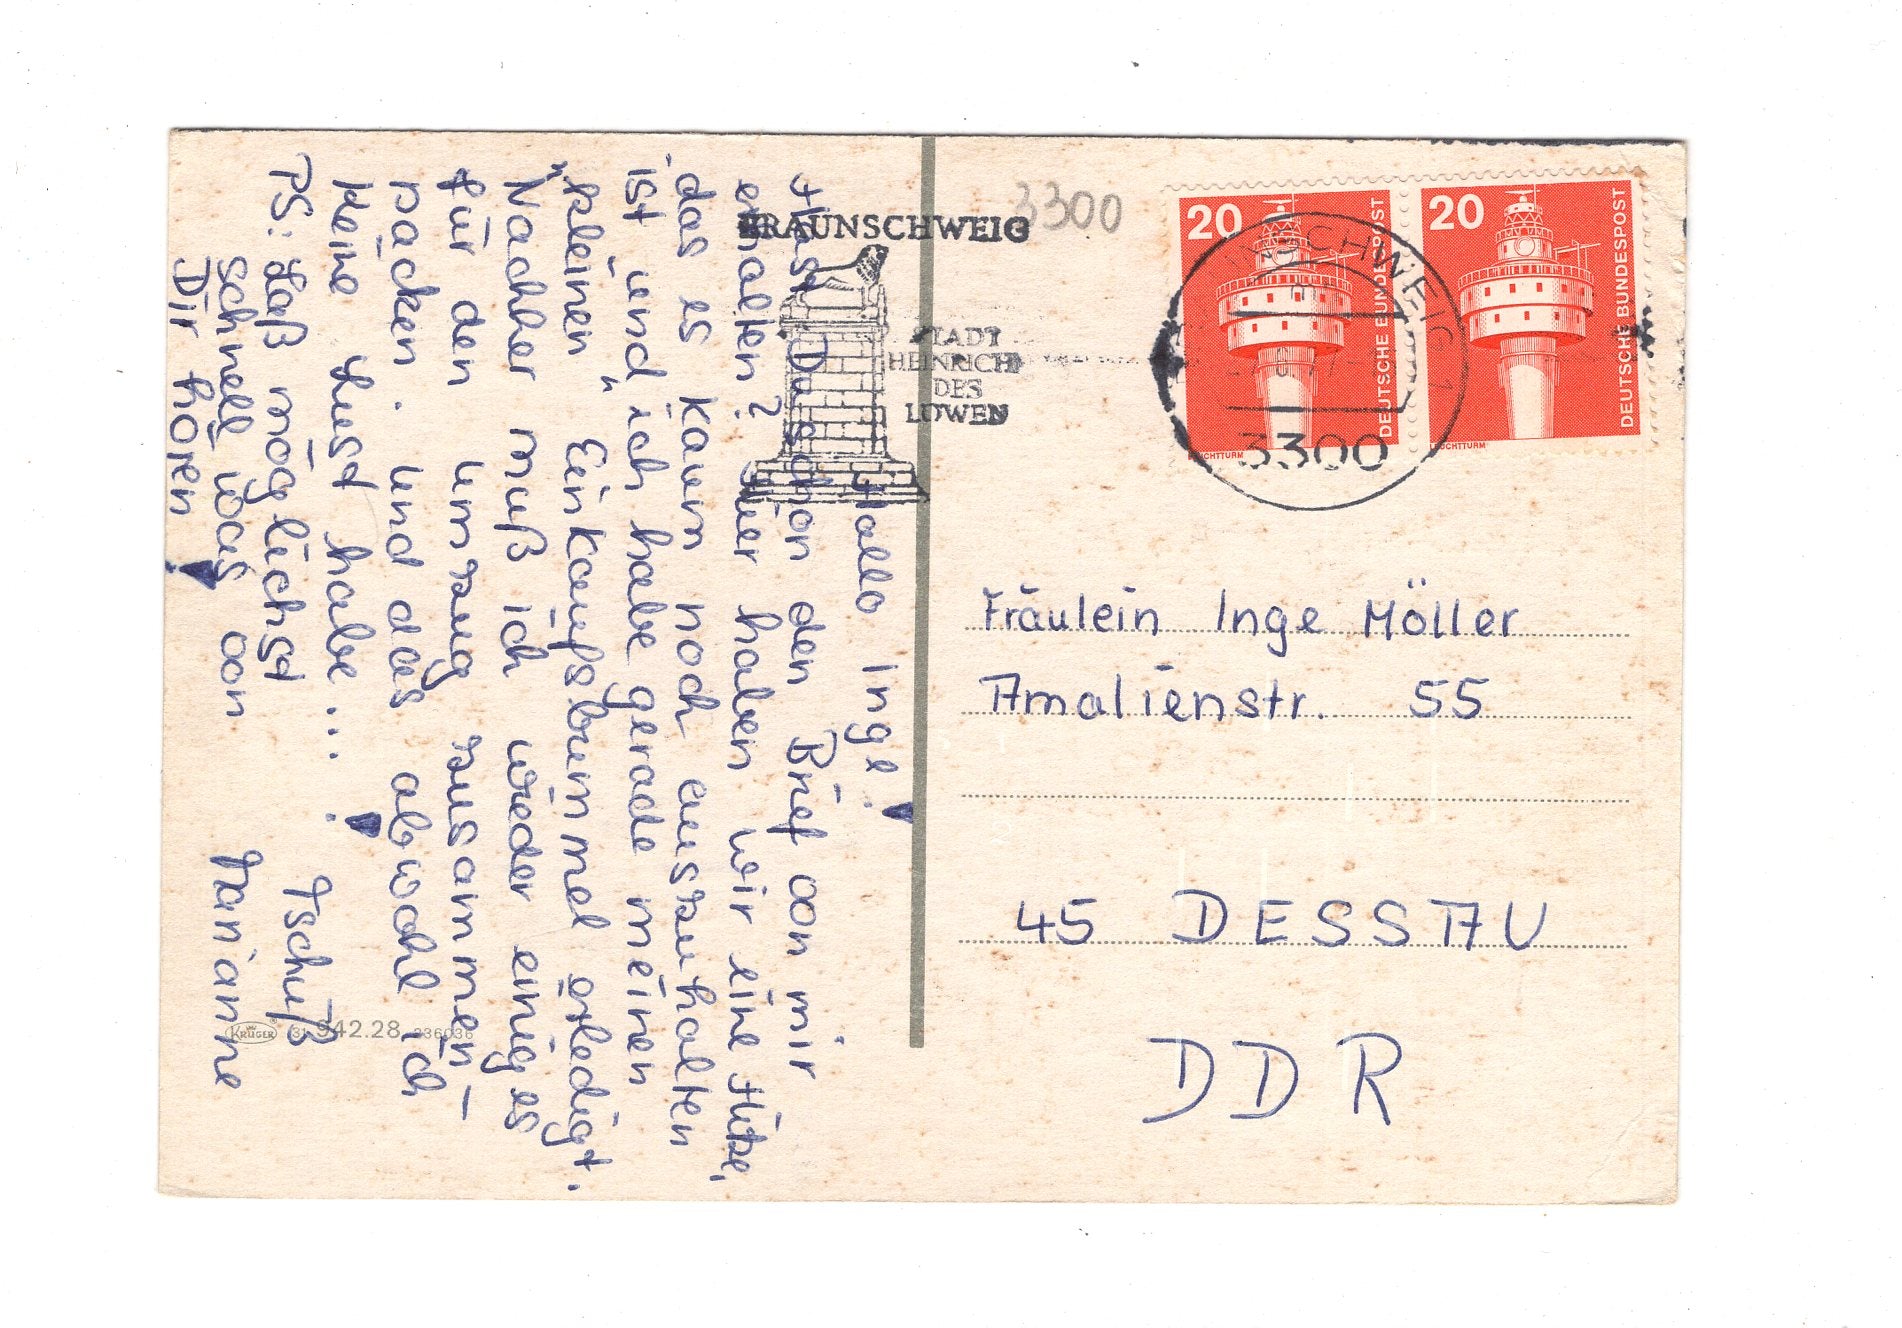 Hallo Inge!
Hast Du schon den Brief von mir
erhalten? Hier haben wir eine Hitze,
das es kaum noch auszuhalten
ist und ich habe gerade meinen
"kleinen" Einkaufsbummel erledigt.
Nachher muß ich wieder einiges
für den Umzug zusammen-
packen. Und das obwohl ich
keine Lust habe...!
Tschüß
Marianne
PS: Laß möglichst
schnell was von
Dir hören!
KRÜGER 942.28 236036
BRAUNSCHWEIG
STADT
HEINRICHS
DES
LÖWEN
3300
20 DEUTSCHE BUNDESPOST
LEUCHTTURM
20 DEUTSCHE BUNDESPOST
LEUCHTTURM
BRAUNSCHWEIG 1
3300
Fräulein Inge Möller
Amalienstr. 55
45 DESSAU
DDR